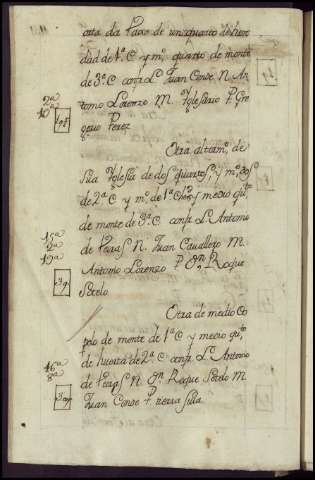 orta da Paxo de un quarto de her
dad de 1ª C y mº quarto de monte
de 3ª C confª Lᵉ Juan Conde N. An
tonio Lorenzo M. Yglesario P. Gre
gorio Perez
2ª
10ª
Otra de
Sua Yglesia de dos quartos, y mº
de 2ª C y mº de 1ª y medio quᵗᵒ
de monte de 3ª C confª Lᵉ Antonio
de N. Juan Cavallejo M.
Antonio Lorenzo P. Dⁿ Roque
Sotelo
15ª
2ª
19ª
Otra de medio co
pelo de monte de 1ª C y medio quᵗᵒ
de huerta de 2ª C confª Lᵉ Antonio
de N. Dⁿ Roque Sotelo M.
Juan Conde P. tierra
16ª
8ª